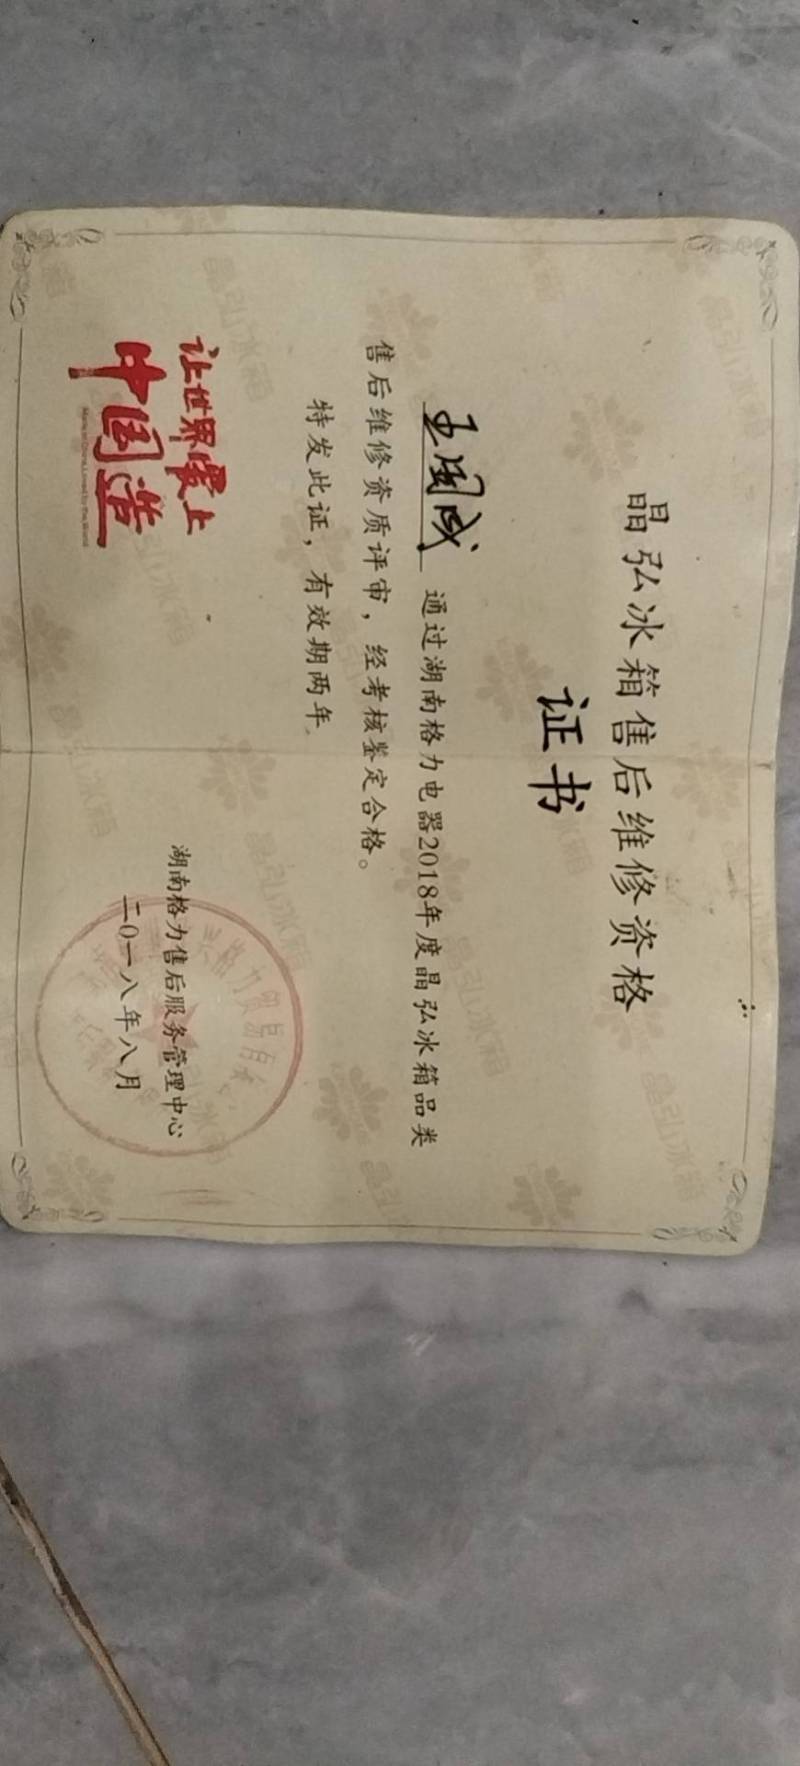 晶弘冰箱售后维修资格
证书
王国成 通过湖南格力电器2018年度晶弘冰箱品类
售后维修资质评审，经考核鉴定合格。
特发此证，有效期两年。
让世界爱上
中国造
Made in China, Loved by the World
湖南格力售后服务管理中心
二〇一八年八月
晶弘冰箱